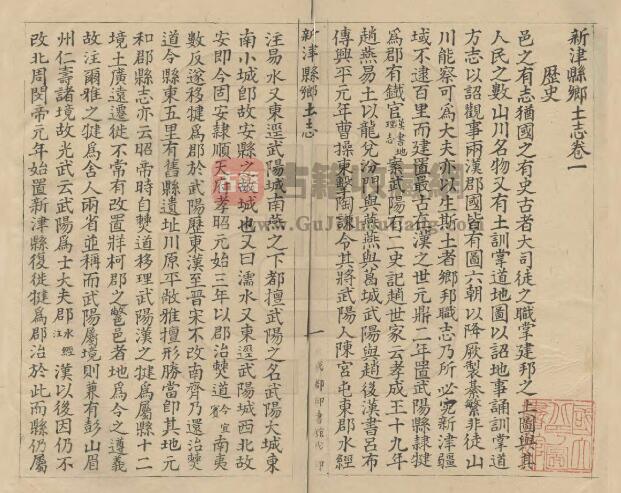 新津縣鄉土志卷一
歷史
邑之有志猶國之有史古者大司徒之職掌建邦之土圖與其
人民之數山川名物又有土訓掌道地圖以詔地事誦訓掌道
方志以詔觀事兩漢郡國皆有圖六朝以降厥製綦繁非徒山
川能察可爲大夫亦生斯土者鄉邦職志乃所必究新津疆
域不逮百里而建置最古有漢之世元鼎二年置武陽縣隸犍
爲郡有鐵官漢書地理志案武陽有二史記趙世家云孝成王十九年
趙燕易土以龍兌汾門與燕燕與葛城武陽與趙後漢書呂布
傳興平元年曹操東擊陶謙令其將武陽人陳宮屯東郡水經
新津縣鄉土志
一
成都印書館印
注易水又東逕武陽城南蓋之下都擅武陽之名武陽大城東
南小城卽故安縣之故城也又曰濡水又東逕武陽城西北故
安卽今固安隸順天府孝昭元始三年以郡治僰道今宜賓南夷
數反遂移犍爲郡於武陽歷東漢至晉宋不改南齊乃還治僰
道今縣東五里有舊縣遺址川原平敞雅擅形勝當卽其地元
和郡縣志亦云昭帝時自僰道移理武陽漢之犍爲屬縣十二
境土廣遠遷徙不常有改置牂柯郡之鄨邑者地爲今之遵義
故注爾雅之犍爲舍人兩省並稱而武陽屬境則兼有彭山眉
州仁壽諸境故光武云武陽爲士大夫郡水經注漢以後因仍不
改北周閔帝元年始置新津縣復徙犍爲郡治於此而縣仍屬
古籍收藏網
www.GuJiShouCang.com